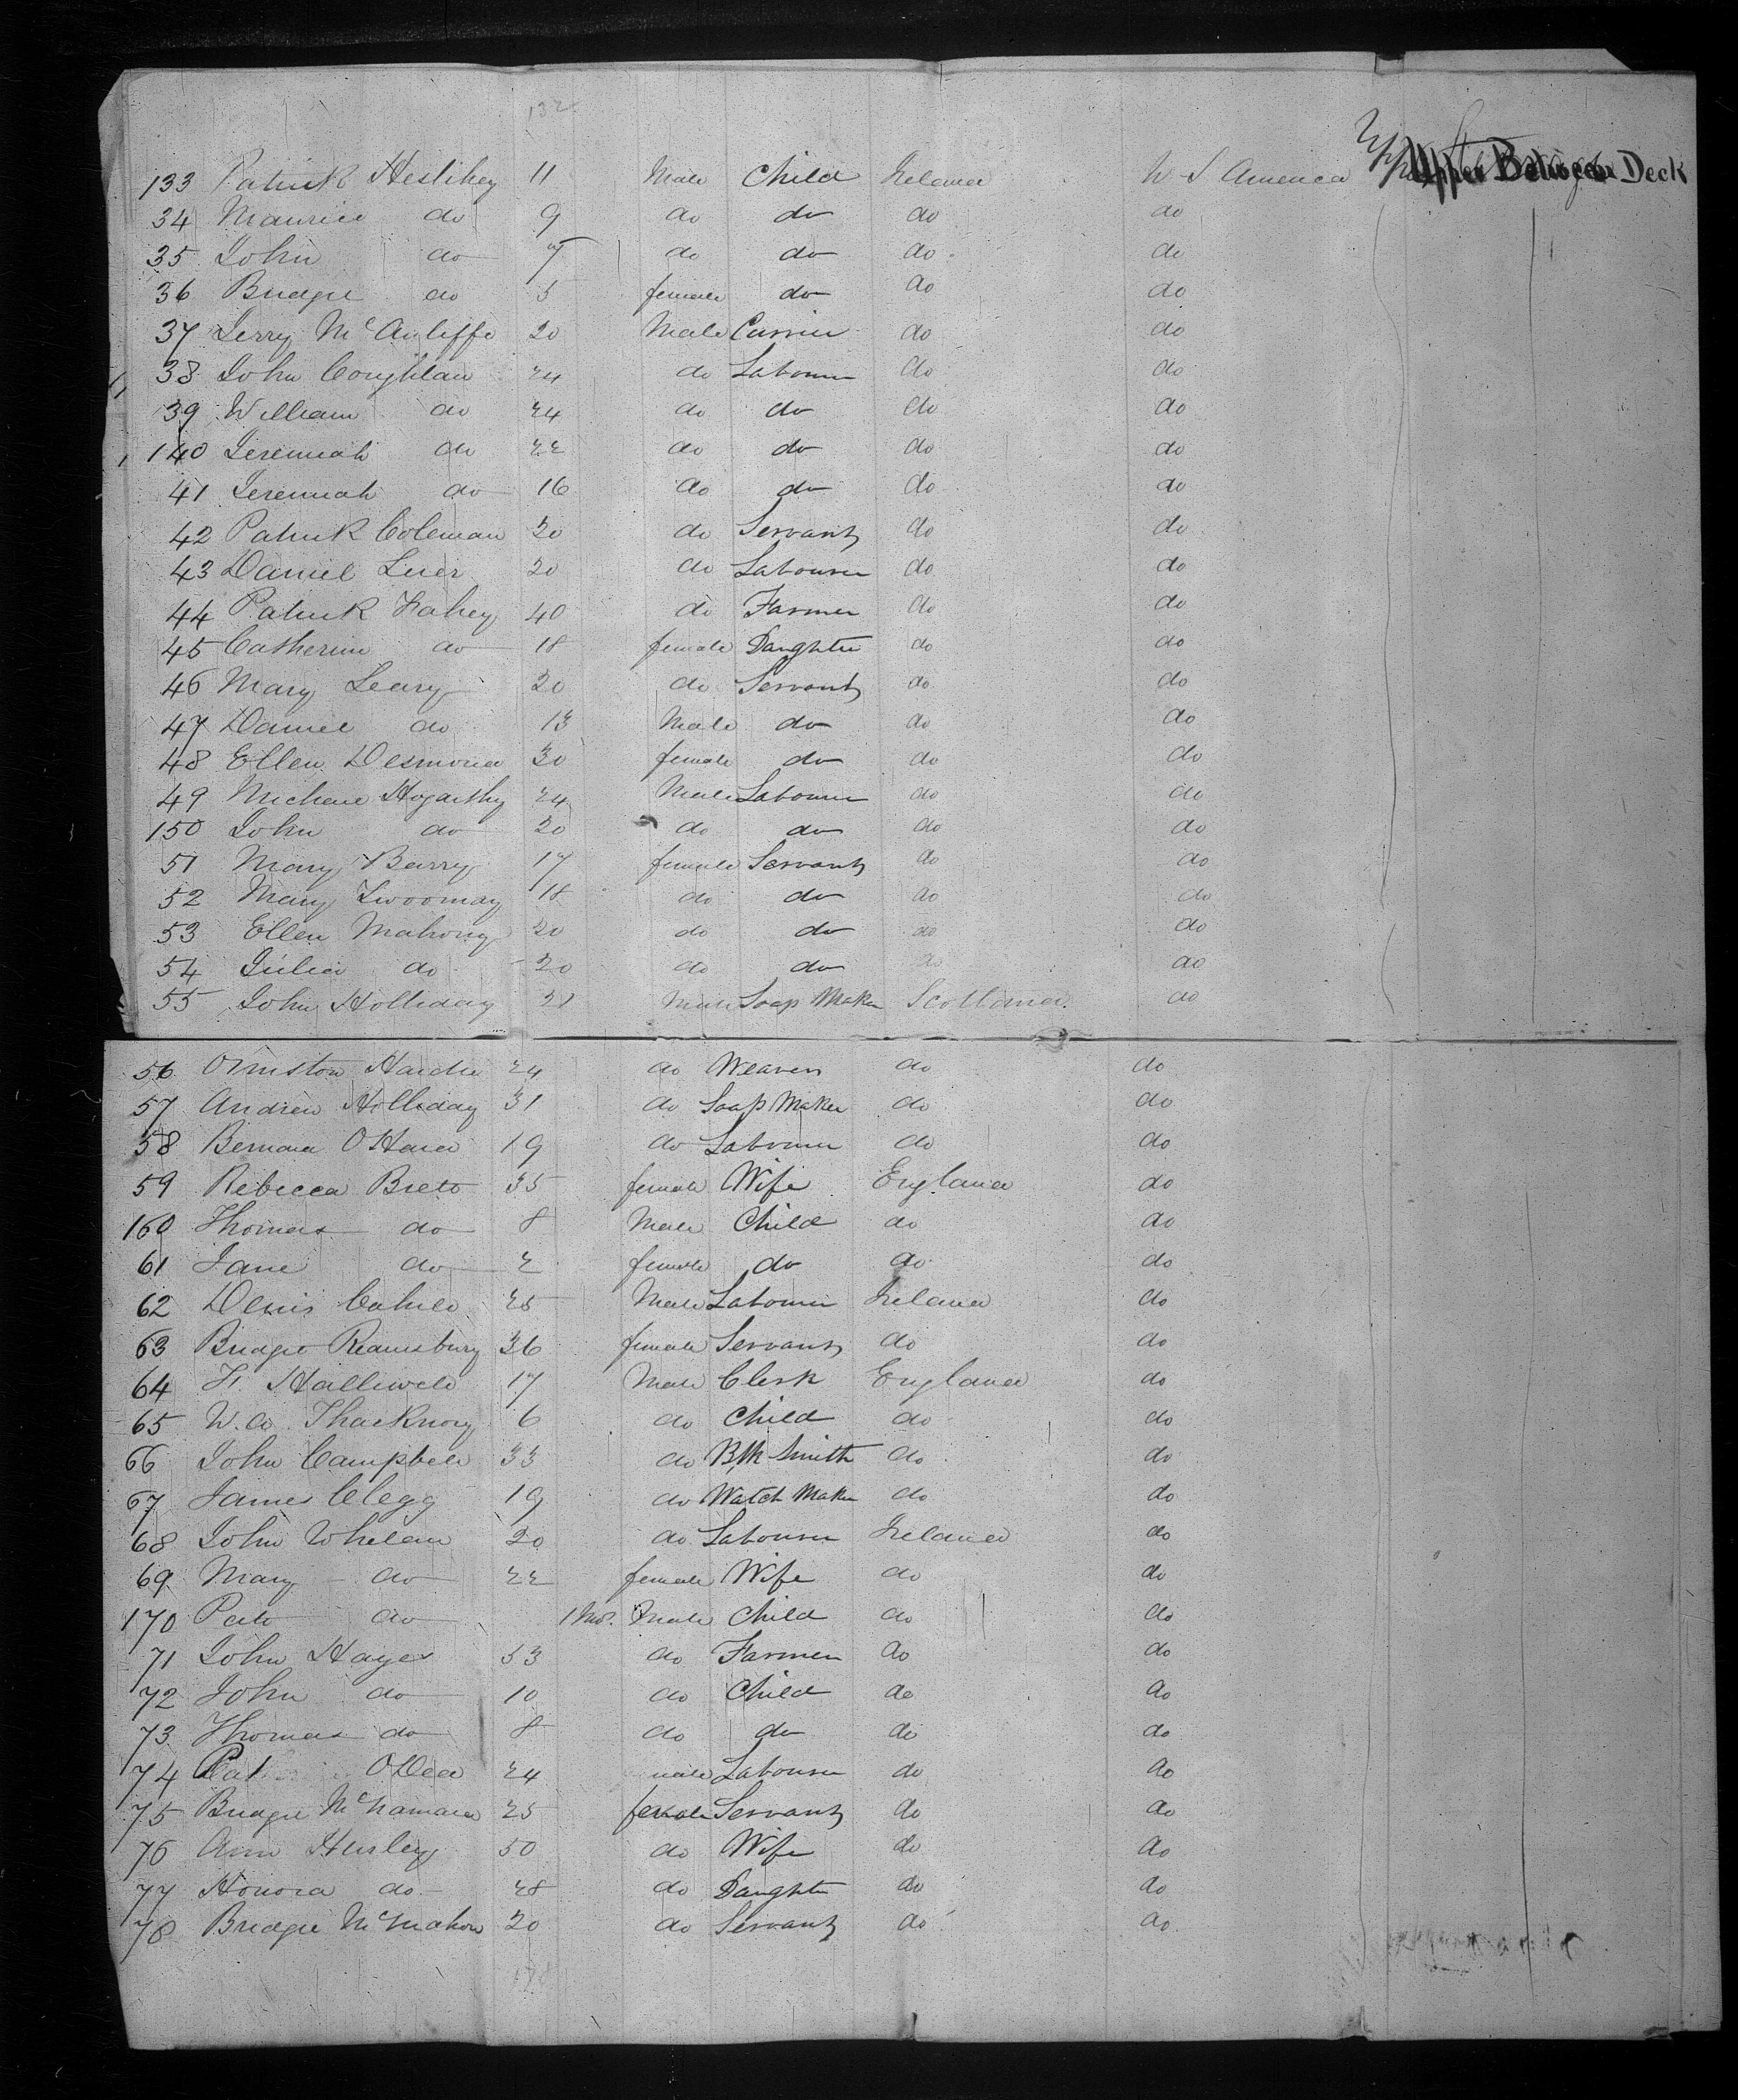 132
Upper Between Deck
133 Patrick Heslihey 11 Male Child Ireland U S America
34 Maurice do 9 do do do do
35 John do 7 do do do do
36 Bridget do 5 female do do do
37 Jerry McAuliffe 20 Male Currier do do
38 John Coughlan 24 do Labourer do do
39 William do 24 do do do do
140 Jeremiah do 22 do do do do
41 Jeremiah do 16 do do do do
42 Patrick Coleman 20 do Servant do do
43 Daniel 20 do Labourer do do
44 Patrick Fahey 40 do Farmer do do
45 Catherine do 18 female Daughter do do
46 Mary Leary 20 do Servant do do
47 Daniel do 13 Male do do do
48 Ellen Desmond 30 female do do do
49 Michael Hogarthy 24 Male Labourer do do
150 John do 20 do do do do
51 Mary Barry 17 female Servant do do
52 Mary Twoomay 18 do do do do
53 Ellen Mahony 20 do do do do
54 Julia do 20 do do do do
55 John Holliday 21 Male Soap Maker Scotland do
56 Ormston Hardie 24 do Weaver do do
57 Andrew Holliday 31 do Soap Maker do do
58 Bernard O'Hara 19 do Labourer do do
59 Rebecca Brett 35 female Wife England do
160 Thomas do 8 Male Child do do
61 Jane do 2 female do do do
62 Denis Cahill 25 Male Labourer Ireland do
63 Bridget Reamsbury 36 female Servant do do
64 H. Halliwell 17 Male Clerk England do
65 W. A. Thacknory 6 do Child do do
66 John Campbell 33 do Blk Smith do do
67 James Clegg 19 do Watch Maker do do
68 John Whelan 20 do Labourer Ireland do
69 Mary do 22 female Wife do do
170 Pat do 1 Mo. Male Child do do
71 John Hayes 53 do Farmer do do
72 John do 10 do Child do do
73 Thomas do 8 do do do do
74 Pat O'Dea 24 male Labourer do do
75 Bridget McNamara 25 female Servant do do
76 Ann Hurley 50 do Wife do do
77 Honora do 28 do Daughter do do
78 Bridget McMahon 20 do Servant do do
178